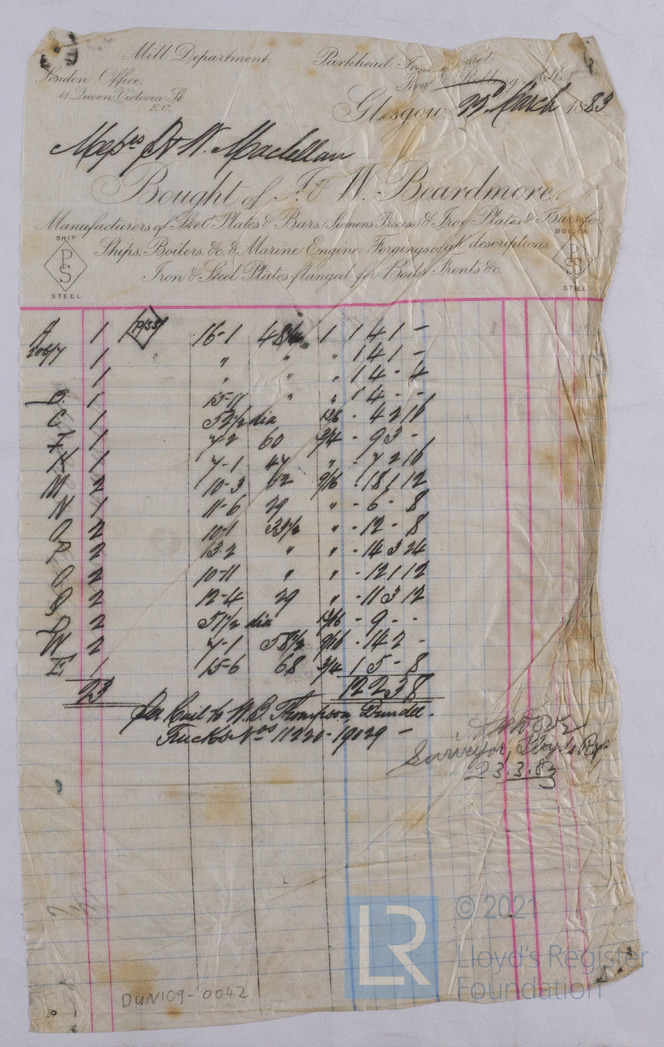 Mill Department.
Parkhead
London Office.
11 Queen Victoria St.
E.C.
Glasgow, 22d March 1883
Messrs P & W. Maclellan
Bought of I. & W. Beardmore.
Manufacturers of Steel Plates & Bars (Siemens Process) & Iron Plates & Bars for
SHIP
PS
STEEL
Ships, Boilers, &c. & Marine Engine Forgings of all descriptions
BOILER
PS
STEEL
Iron & Steel Plates flanged for Boiler Fronts &c.
1 16-1 1 1 4 1 -
1 " " " 1 4 1 -
1 " " " 1 4 - 4
1 15-11 " " 1 4 - -
C 1 52½ dia - 4 2 16
1 7-2 60 3/4 - 9 3 -
1 7-1 47 " - 7 2 16
M 2 10-3 42 9/16 - 18 1 12
N 1 11-6 29 " - 6 - 8
O 2 10-1 " - 12 - 8
2 13-2 " " - 14 3 24
2 10-11 " " - 12 1 12
2 12-4 29 " - 11 3 12
2 57½ dia - 9 - -
W 2 7-1 58½ 9/16 - 14 2 -
E 1 15-6 68 3/4 1 5 - 8
23 12 2 3 8
per Rail to W. B. Thompson, Dundee.
Trucks Nos 11220 - 19029 -
Surveyor, Lloyds Reg.
23.3.83
DUN109-0042
LR
© 2021
Lloyd's Register
Foundation